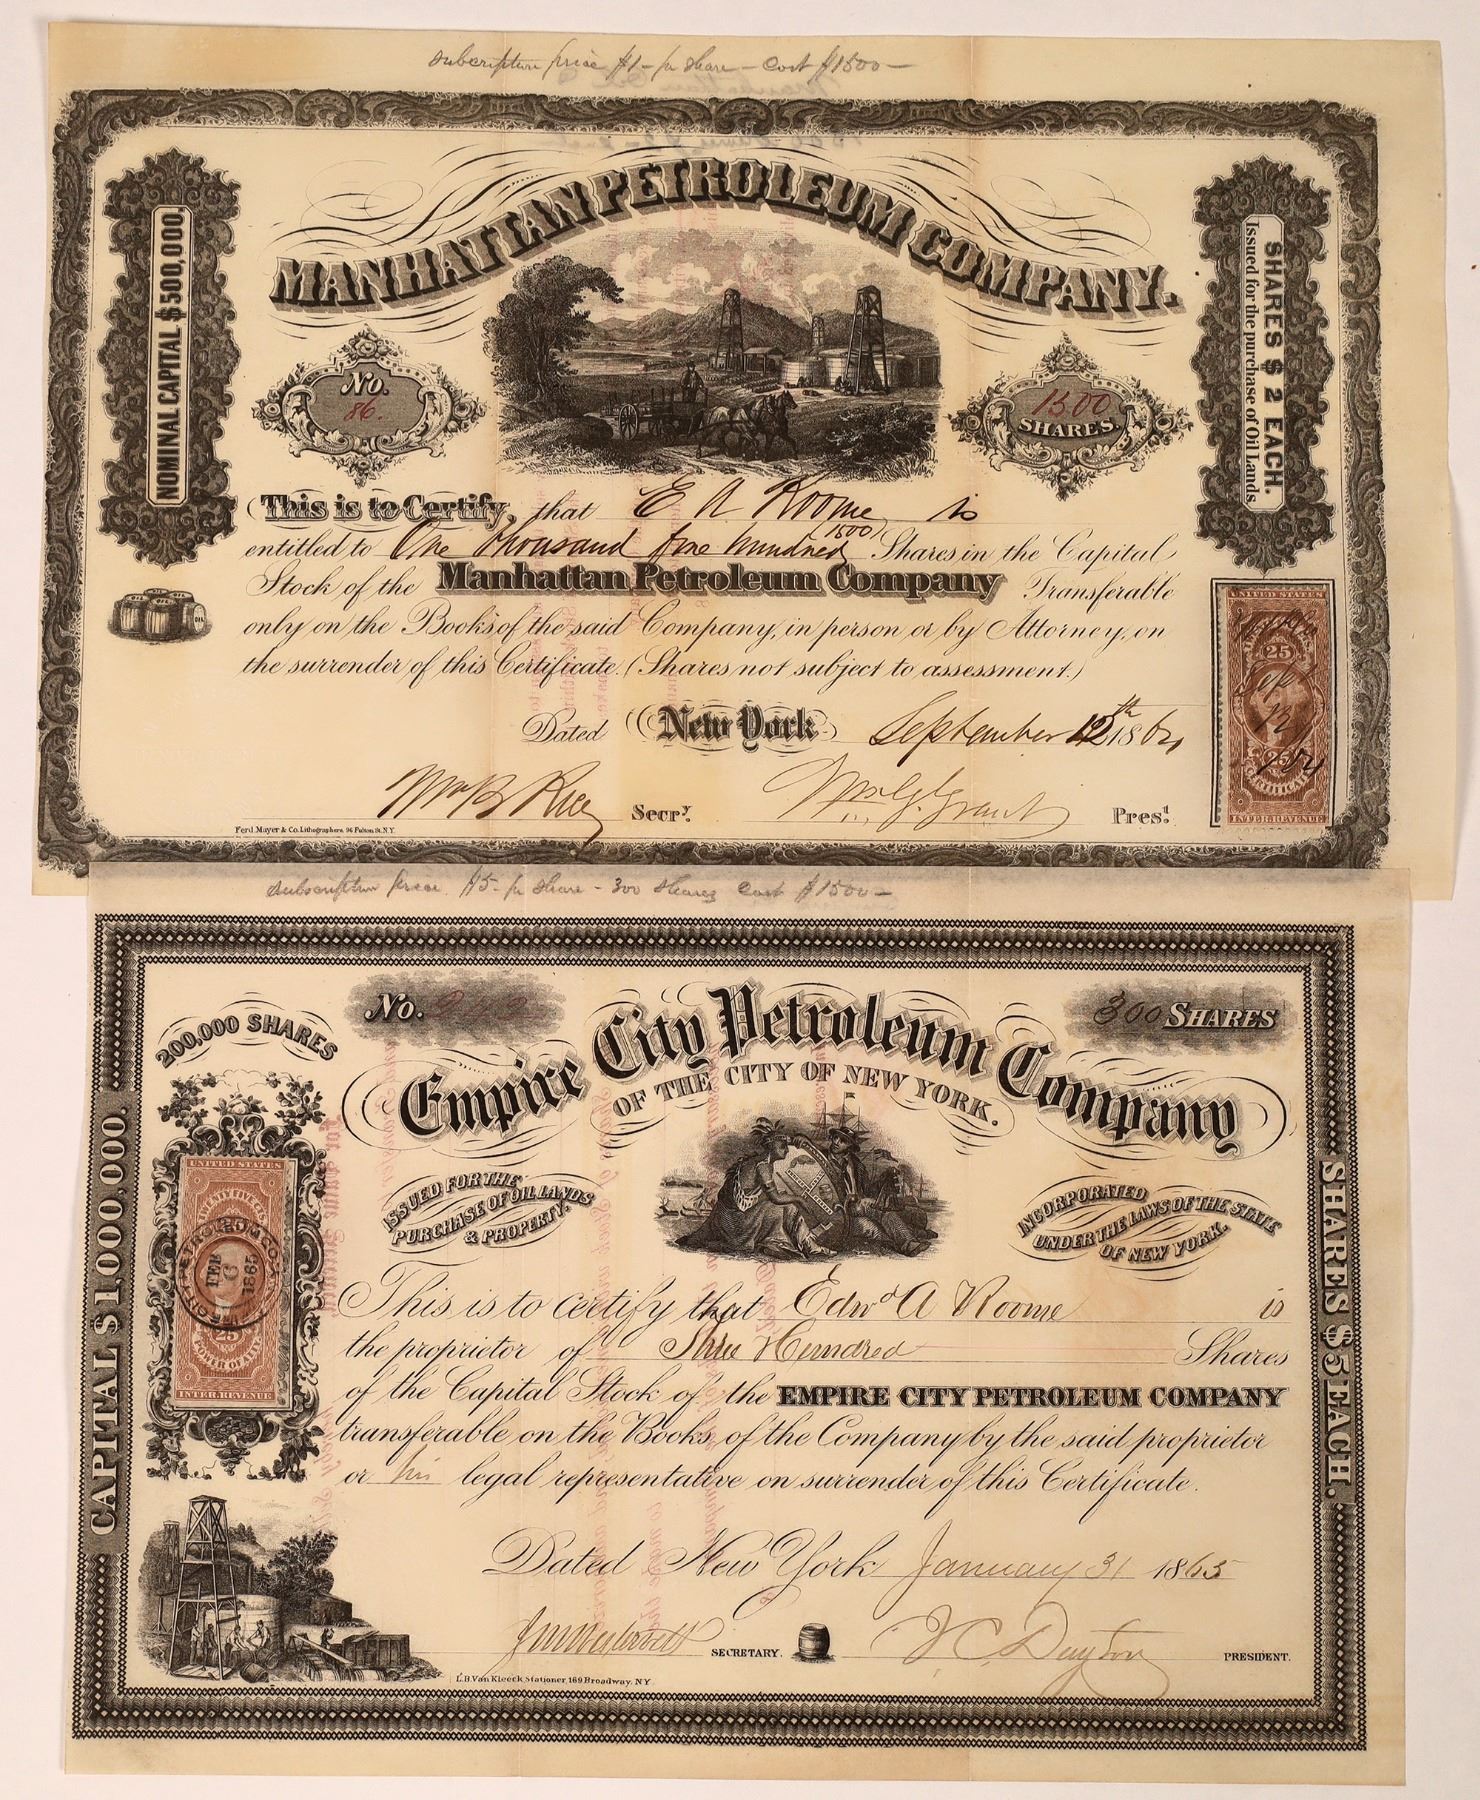 subscription price $1 - pr share - cost $1500 -
MANHATTAN PETROLEUM COMPANY.
NOMINAL CAPITAL $500,000.
SHARES $2 EACH.
Issued for the purchase of Oil Lands.
No. 86.
1500 SHARES.
This is to Certify, that E A Roome is
entitled to One thousand five hundred (1500) Shares in the Capital
Stock of the Manhattan Petroleum Company Transferable
only on the Books of the said Company, in person or by Attorney, on
the surrender of this Certificate. (Shares not subject to assessment.)
OIL OIL
UNITED STATES
25
Sep
12
25
INTER. REVENUE
Dated New York September 12th 1864
Wm B Rice Secry. Wm. G. Grant Prest.
Ferd. Mayer & Co. Lithographers. 96 Fulton St. N.Y.
subscription price $5 - pr share - 300 shares cost $1500 -
No. 242
300 SHARES
200,000 SHARES
Empire City Petroleum Company
OF THE CITY OF NEW YORK.
CAPITAL $1,000,000.
SHARES $5 EACH.
ISSUED FOR THE
PURCHASE OF OIL LANDS
& PROPERTY.
INCORPORATED
UNDER THE LAWS OF THE STATE
OF NEW YORK.
UNITED STATES
TWENTY FIVE CENTS
FEB
6
1865
25
POWER OF ATTY
INTER. REVENUE
This is to certify that Edwd A Roome is
the proprietor of Three Hundred Shares
of the Capital Stock of the EMPIRE CITY PETROLEUM COMPANY
transferable on the Books of the Company by the said proprietor
or his legal representative on surrender of this Certificate.
Dated New York January 31 1865
J M Westervelt SECRETARY. J C Dayton PRESIDENT.
L.B. Van Kleeck, Stationer, 169 Broadway. NY